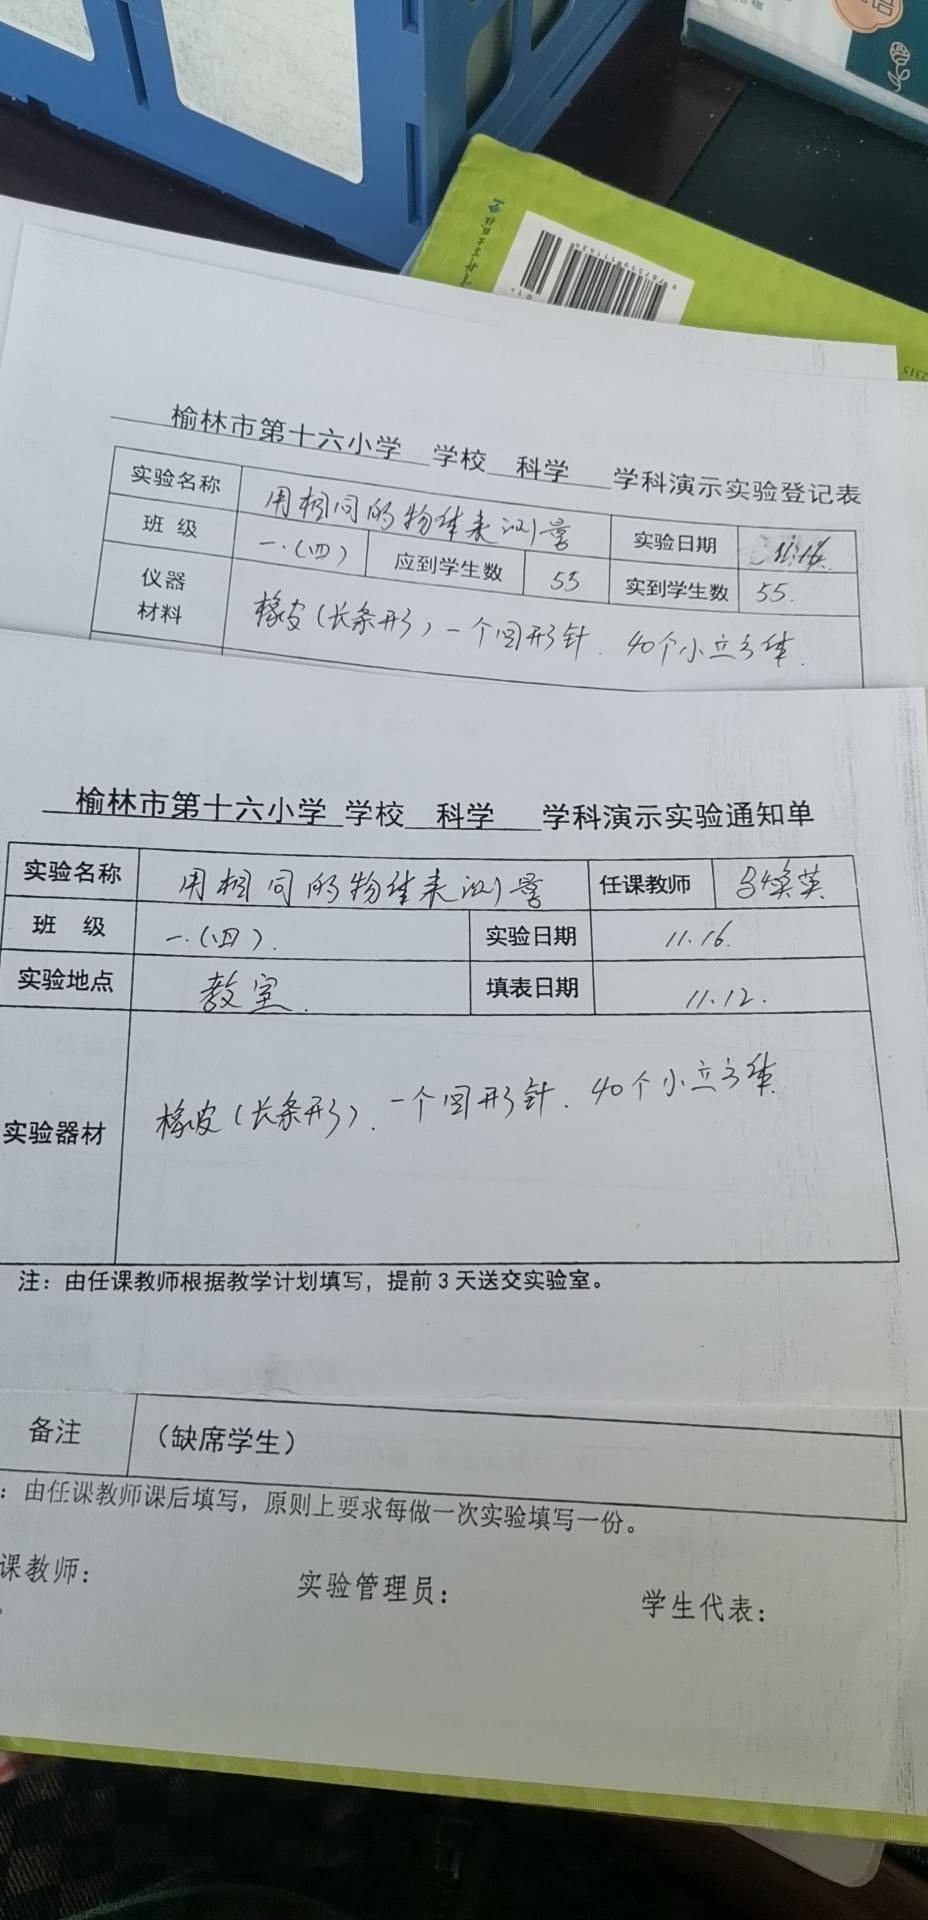 榆林市第十六小学 学校 科学 学科演示实验登记表
实验名称 用相同的物体来测量 实验日期 11.16.
班 级 一.(四) 应到学生数 55 实到学生数 55.
仪器
材料 橡皮(长条形)一个回形针.40个小立方体.
榆林市第十六小学 学校 科学 学科演示实验通知单
实验名称 用相同的物体来测量 任课教师 吕焕英
班 级 一.(四). 实验日期 11.16.
实验地点 教室. 填表日期 11.12.
实验器材 橡皮(长条形).一个回形针.40个小立方体
注:由任课教师根据教学计划填写,提前3天送交实验室。
备注 (缺席学生)
:由任课教师课后填写,原则上要求每做一次实验填写一份。
课教师: 实验管理员: 学生代表: